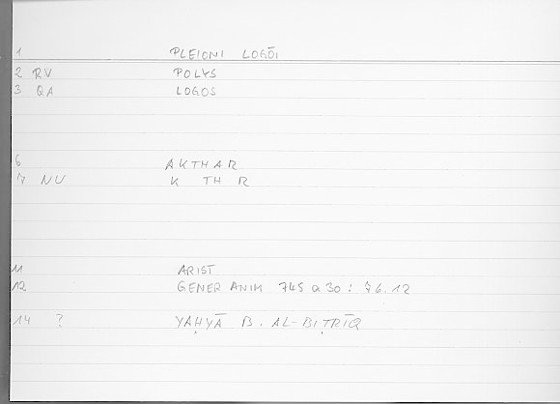 1 PLEIONI LOGŌI
2 RV POLYS
3 QA LOGOS
6 AKTHAR
7 NU K TH R
11 ARIST
12 GENER ANIM 745 a 30 : 76.12
14 ? YAḤYĀ B. AL-BIṬRĪQ